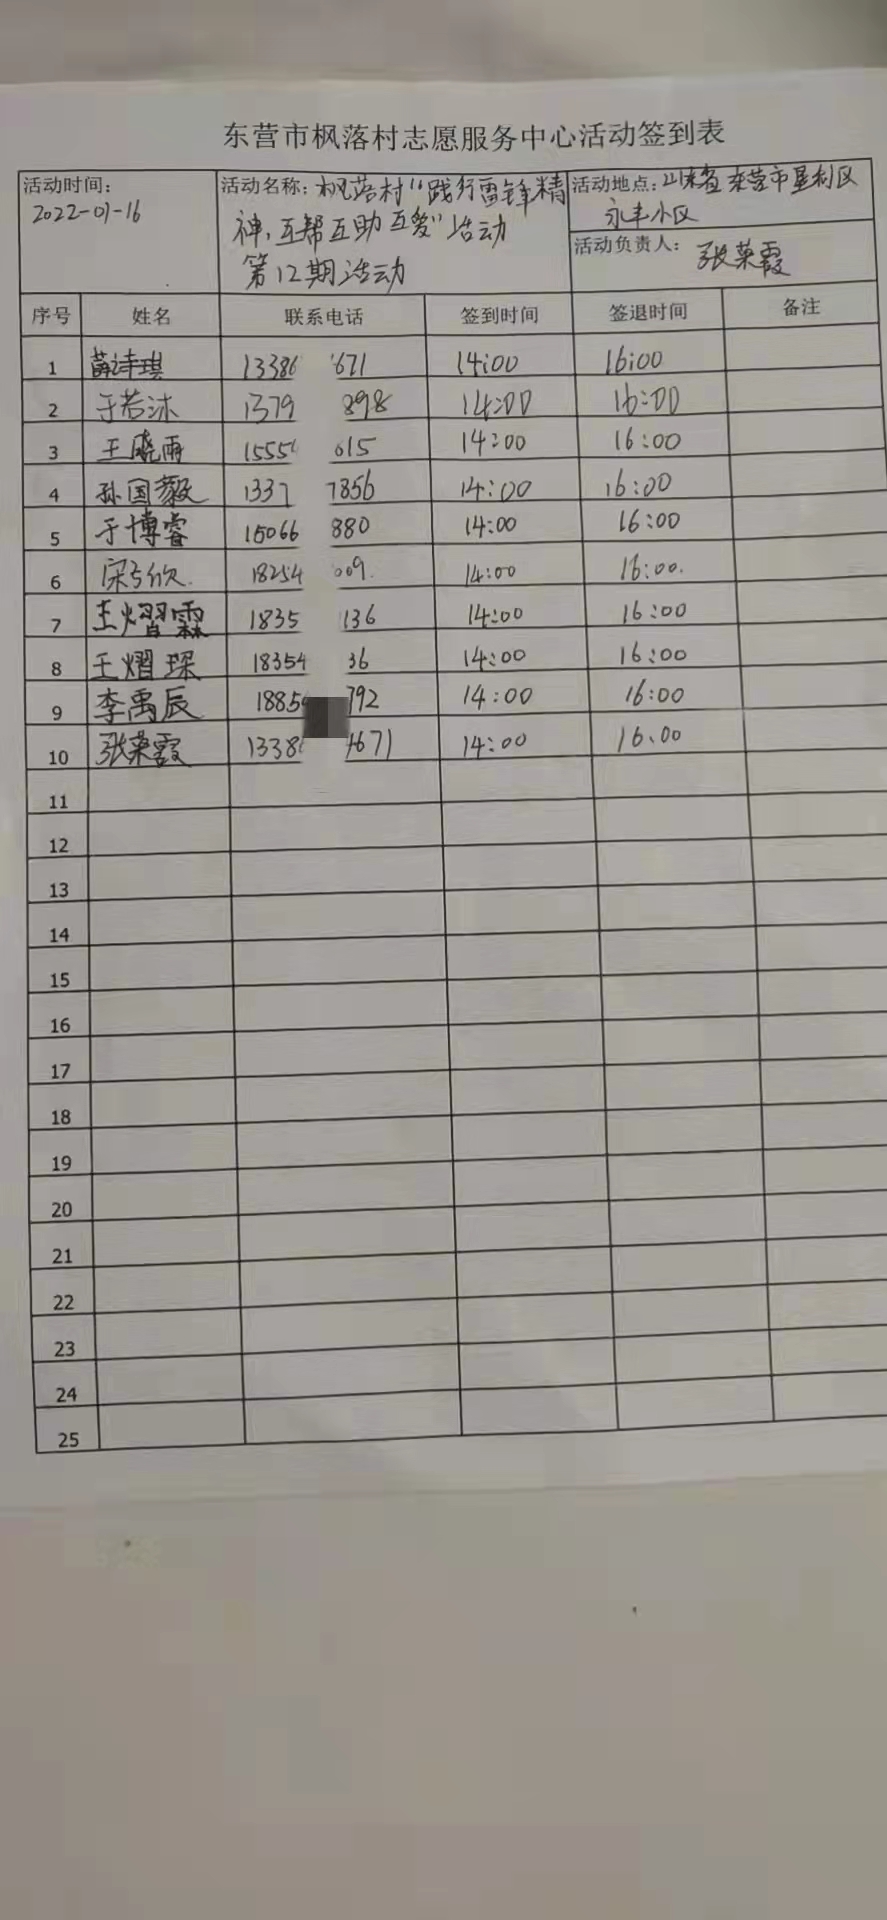 东营市枫落村志愿服务中心活动签到表
活动时间： 活动名称：枫落村“践行雷锋精 活动地点：山东省东营市垦利区
2022-01-16 神，互帮互助互爱”活动 永丰小区
第12期活动 活动负责人：张荣霞
序号 姓名 联系电话 签到时间 签退时间 备注
1 薛诗琪 13386 671 14:00 16:00
2 于若沐 1379 898 14:00 16:00
3 王晓雨 1555 615 14:00 16:00
4 孙国毅 1337 7856 14:00 16:00
5 于博睿 15066 880 14:00 16:00
6 18254 009. 14:00 16:00.
7 王熠霖 1835 136 14:00 16:00
8 王熠琛 18354 36 14:00 16:00
9 李禹辰 1885 792 14:00 16:00
10 张荣霞 1338 4671 14:00 16.00
11
12
13
14
15
16
17
18
19
20
21
22
23
24
25